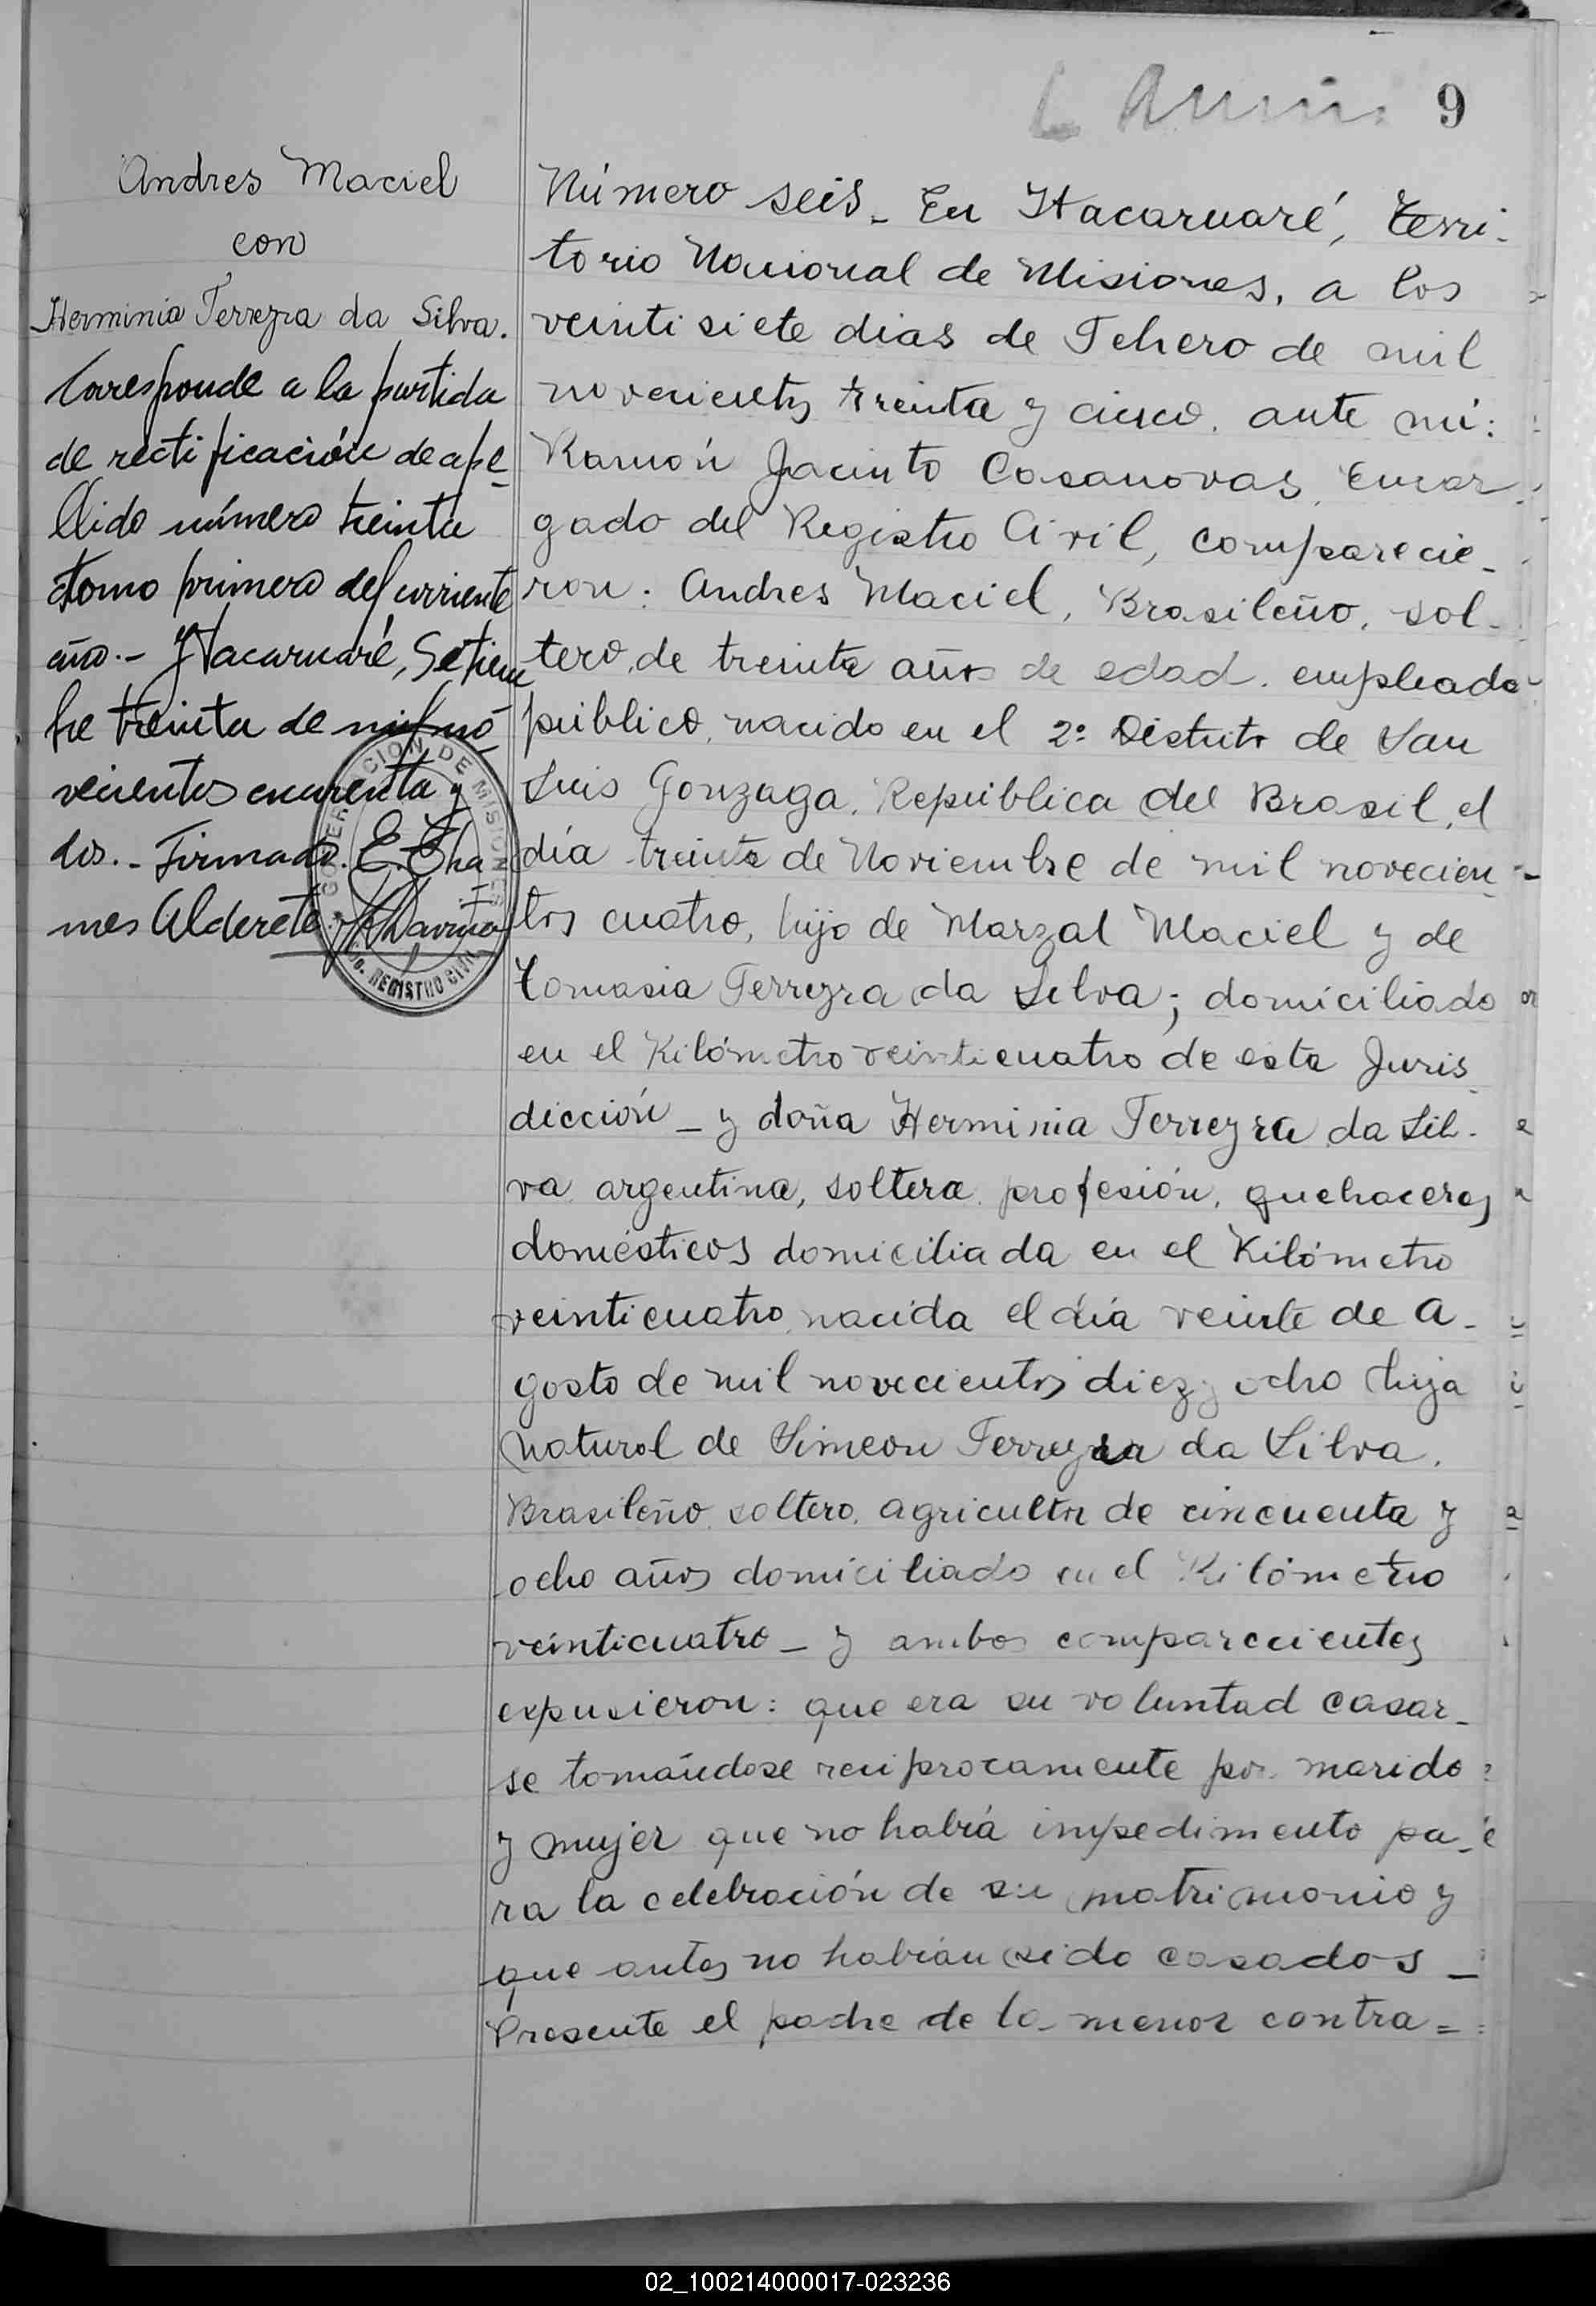 9
Andres Maciel
con
Herminia Ferreyra da Silva.
Corresponde a la partida
de rectificación de ape-
llido número treinta
tomo primero del corriente
año.- Itacaruaré, Setiem
bre treinta de mil no-
vecientos cuarenta y
dos.- Firmado. E. Cha
mes Alderete.
GOBERNACION DE MISIONES
REGISTRO CIVIL
Número seis_ En Itacaruaré, Terri-
torio Nacional de Misiones, a los
veinti siete dias de Febrero de mil
novecientos treinta y cinco. ante mi:
Ramón Jacinto Casanovas, Encar
gado del Registro Civil, comparecie_
ron: Andres Maciel, Brasileño, sol-
tero, de treinta años de edad. empleado
público, nacido en el 2º Distrito de San
Luis Gonzaga, República del Brasil, el
día treinta de Noviembre de mil novecien-
tos cuatro, hijo de Marzal Maciel y de
Tomasia Ferreyra da Silva; domiciliado
en el Kilómetro veinticuatro de esta Juris
dicción _ y doña Herminia Ferreyra da Sil-
va argentina, soltera. profesión, quehaceres
domésticos domiciliada en el Kilómetro
veinticuatro, nacida el día veinte de A-
gosto de mil novecientos diez y ocho hija
natural de Simeon Ferreyra da Silva.
Brasileño. soltero. agricultor de cincuenta y
ocho años domiciliado en el Kilómetro
veinticuatro _ y ambos comparecientes
expusieron: que era su voluntad casar_
se tomándose reciprocamente por marido
y mujer que no había impedimento pa_
ra la celebración de su matrimonio y
que antes no habían sido casados _
Presente el padre de la menor contra=
02_100214000017-023236